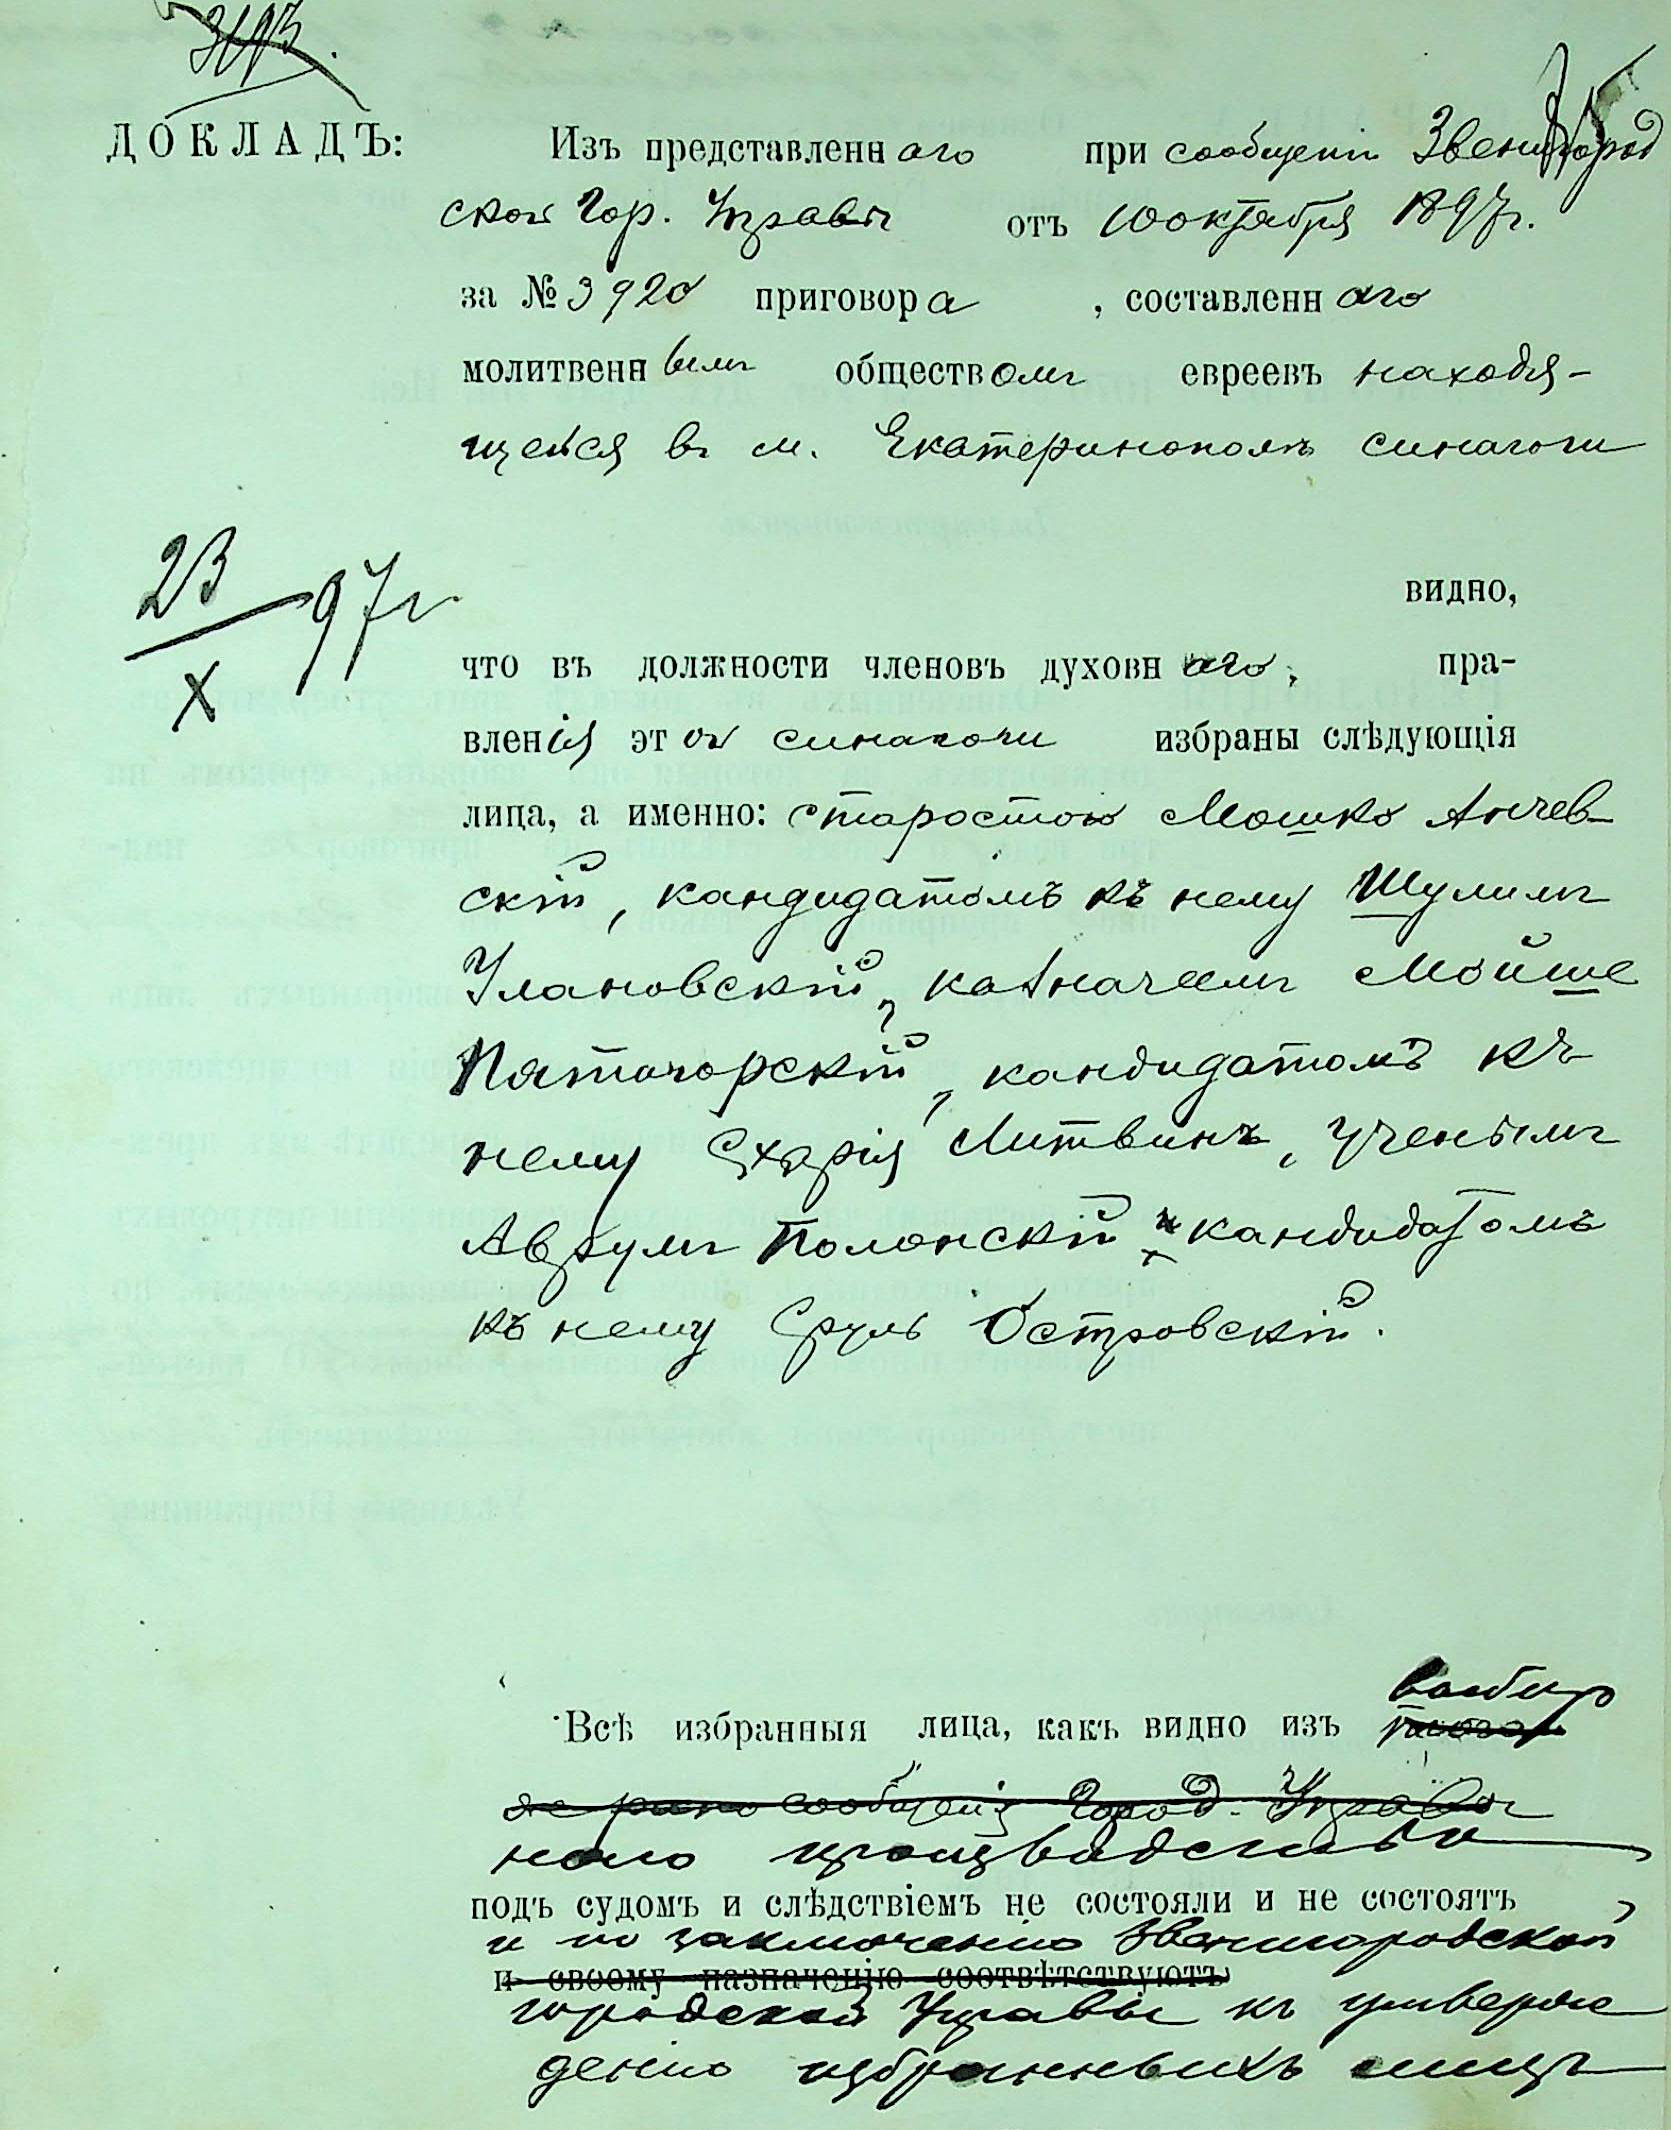 ДОКЛАДЪ: Изъ представленнаго при сообщеніи Звенигород
ской Гор. Управы отъ 10 октября 1897 г.
за № 3920 приговора, составленнаго
молитвеннымъ обществомъ евреевъ находя-
щейся въ м. Екатеринополѣ синагоги
23/X 97 г.
видно,
что въ должности членовъ духовнаго пра-
вленія этой синагоги избраны слѣдующія
лица, а именно: старостою Мошко Анчев-
скій, кандидатомъ къ нему Шулимъ
Улановскій, казначеемъ Мойше
Пятигорскій, кандидатомъ къ
нему Схарія Литвинъ, ученымъ
Аврумъ Полонскій и кандидатомъ
къ нему Сруль Островскій.
выбор
Всѣ избранныя лица, какъ видно изъ
сообщенія Город. Управы
наго производства
подъ судомъ и слѣдствіемъ не состояли и не состоятъ,
и по заключенію Звенигородской
и своему назначенію соотвѣтствуютъ
городской Управы къ утверж
денію избранныхъ лицъ